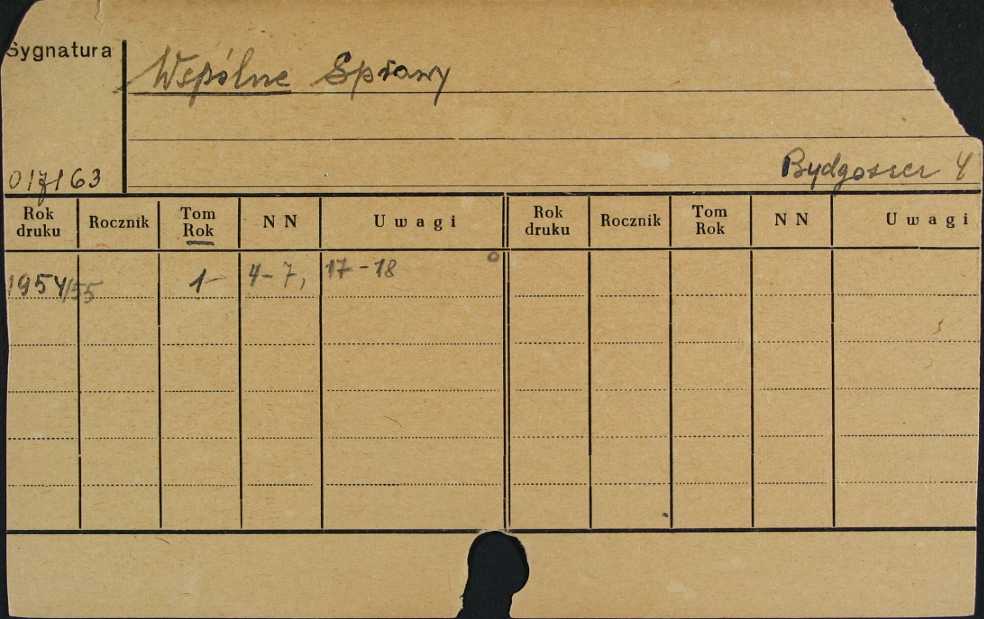 Sygnatura
Wspólne Sprawy
017163
Bydgoszcz Y
Rok druku Rocznik Tom Rok N N Uwagi Rok druku Rocznik Tom Rok N N Uwagi
1954/55 1 4-7, 17-18